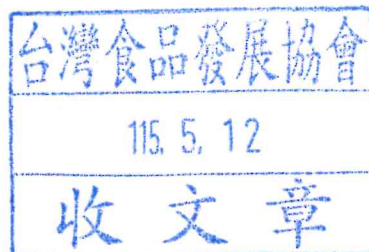 台灣食品發展協會
115. 5. 12
收文章